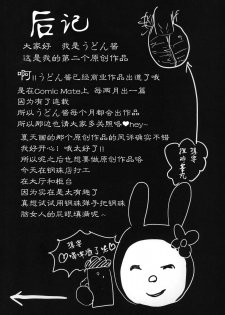 后记
大家好 我是うどん酱
这是我的第二个原创作品
啊!!うどん酱已经商业作品出道了哦
是在Comic Mate上 每两月出一篇
因为有了连载
所以うどん酱每个月都会出作品
所以那边也请大家多关照咯♥hey~
夏天画的那个原创作品的风评确实不错
我好开心！哦太好了!!
所以呢之后也想要做原创作品咯
今天在钢珠店打工
在大厅和柜台
因为实在是太有趣了
真想试试用钢珠弹手把钢珠
脂女人的屁眼填满呢~